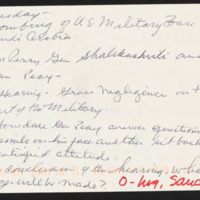 sday -
ombing of U.S. Military Barr
udi Arabia.
Perry, Gen Shalikashvili and
en Peay -
Hearing - Gross Negligence on t
rt of the Military.
How dare Gen Peay answer question
smile on his face and then sit back
attitude.
conclusion of the hearing, wha
will be made?
O-Mg, Saud